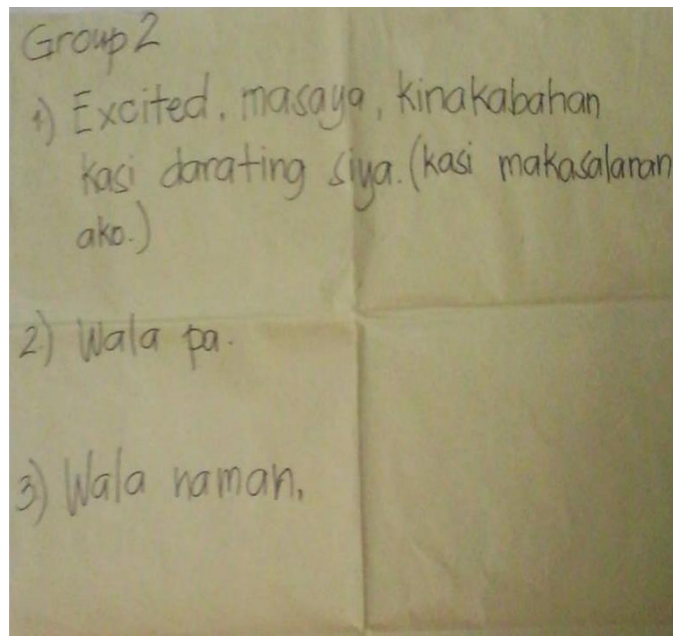 Group 2
1) Excited, masaya, kinakabahan
kasi darating siya. (kasi makasalanan
ako.)
2) Wala pa.
3) Wala naman.